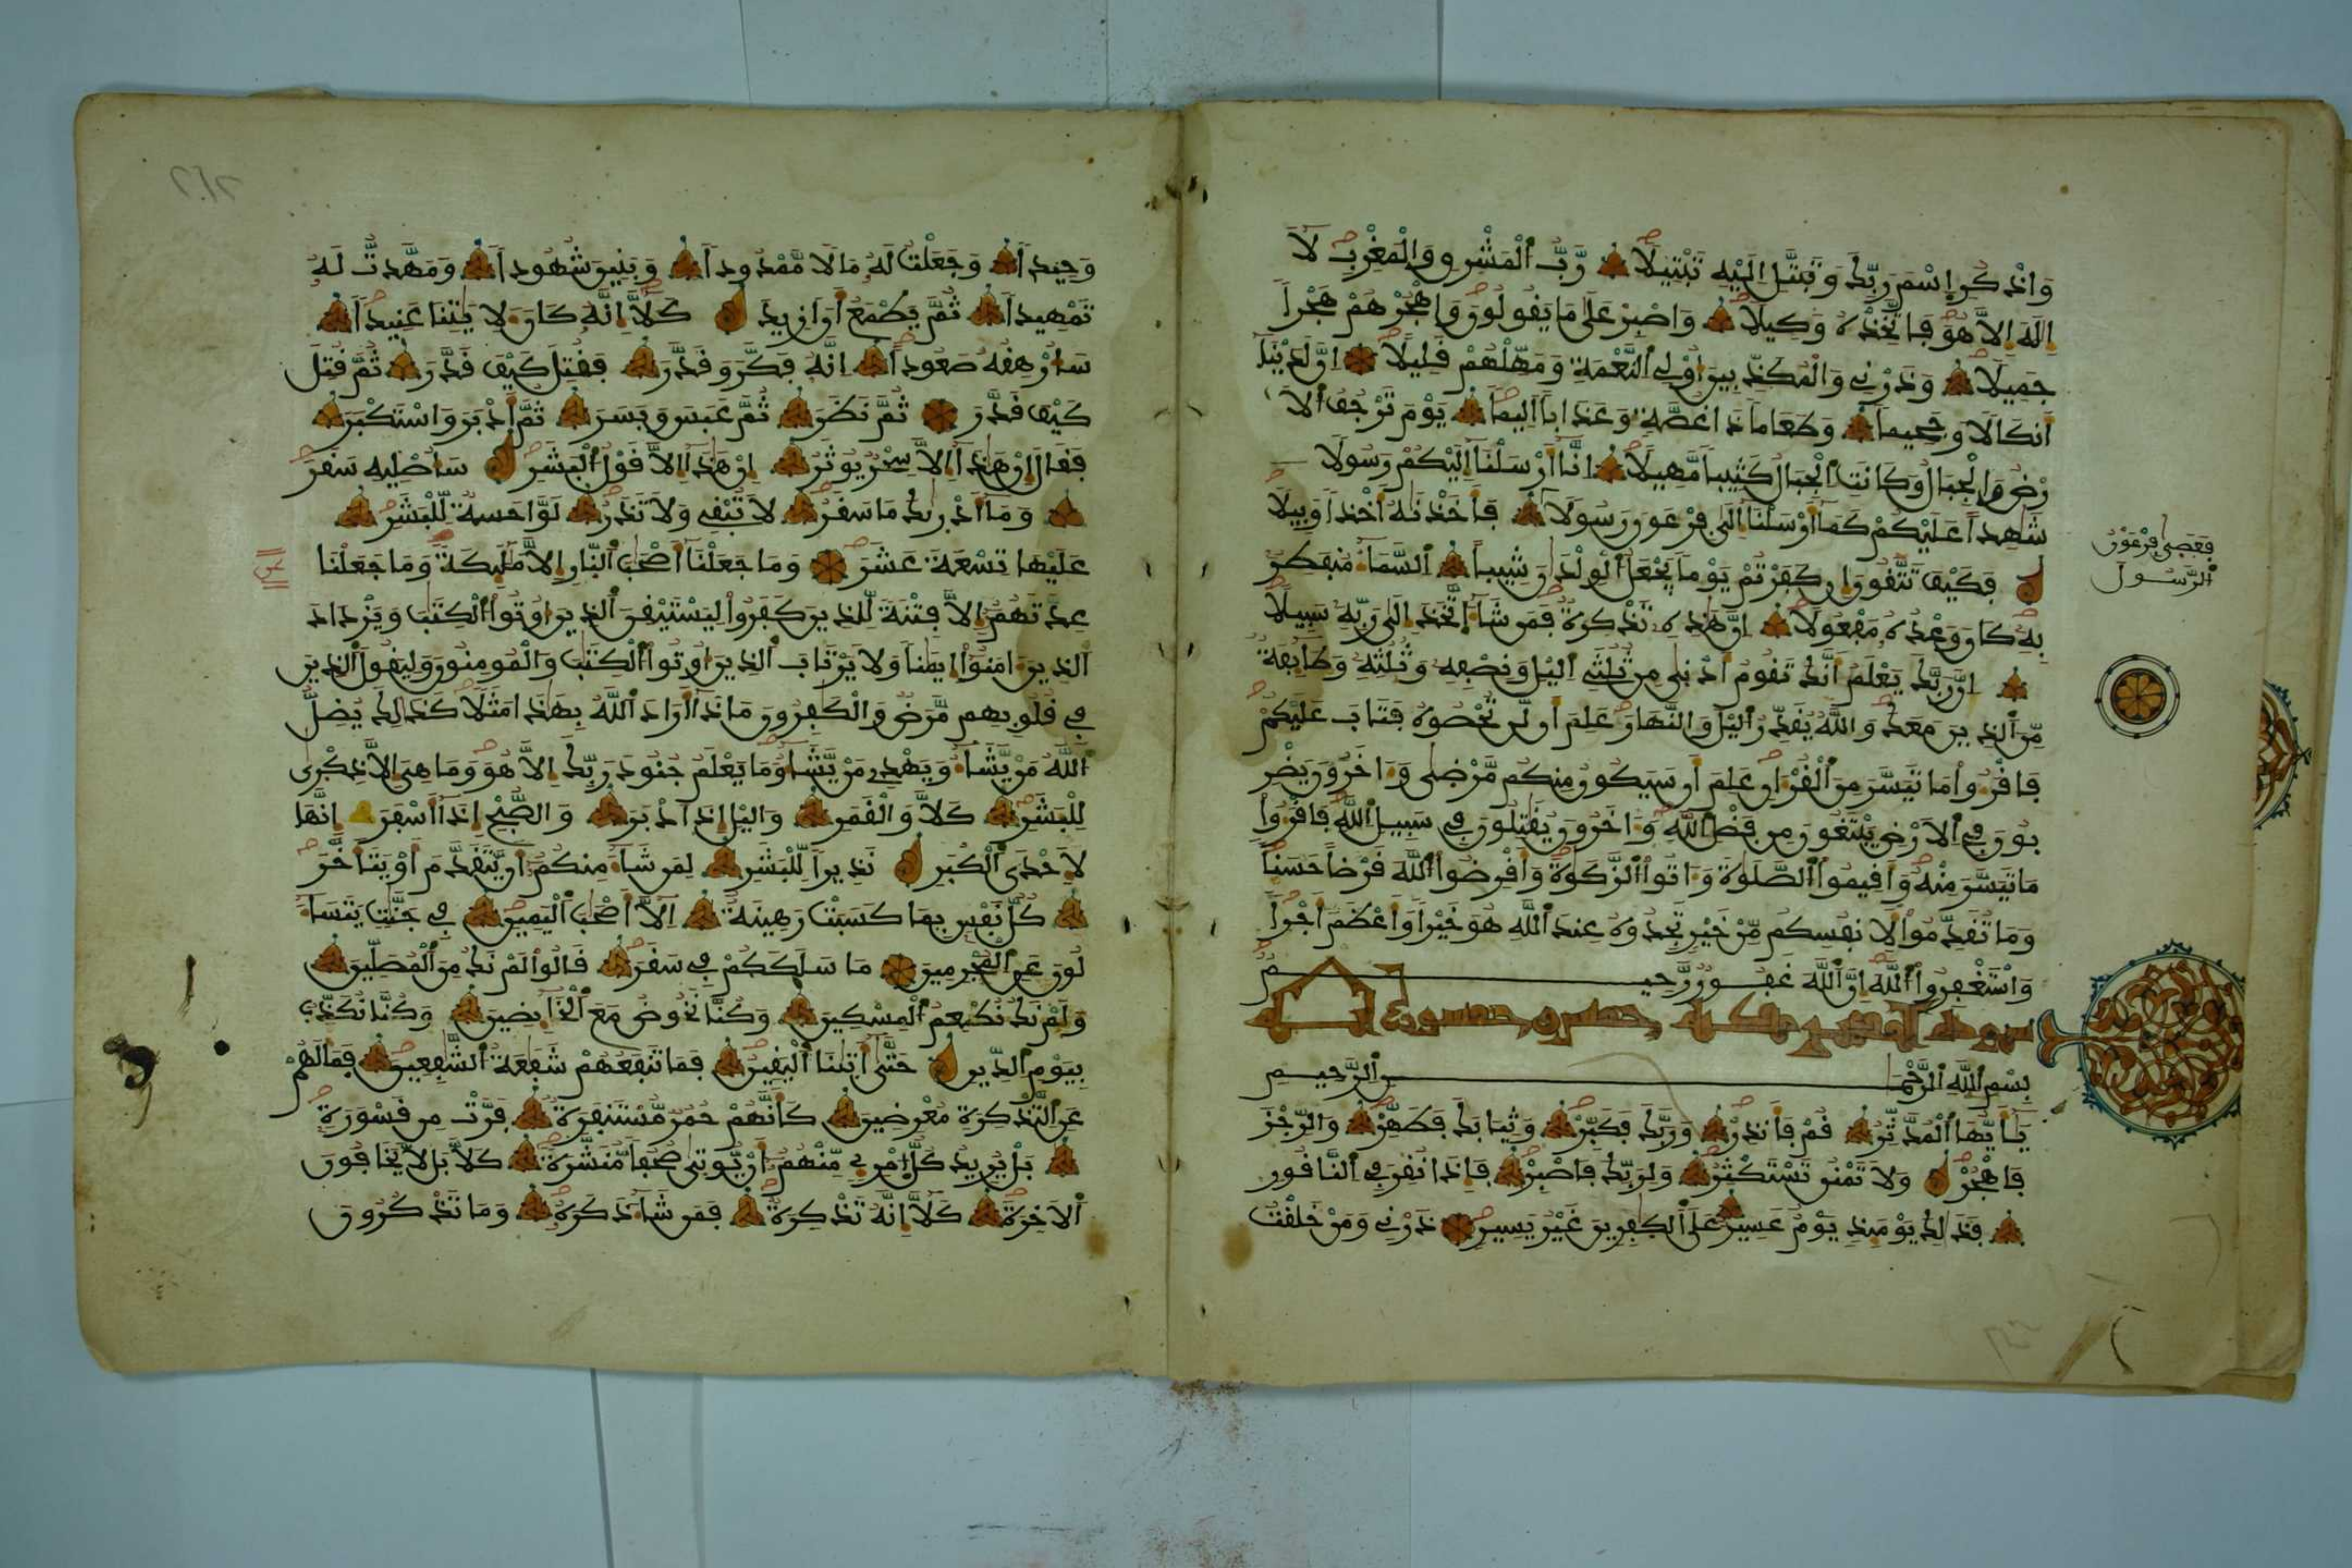 وَاذْكُرِ اِسْمَ رَبِّكَ وَتَبَتَّلِ اِلَيْهِ تَبْتِيلًا رَّبُّ اُ۬لْمَشْرِقِ وَالْمَغْرِبِ لَا
إِلَهَ إِلَّا هُوَ فَاتَّخِذْهُ وَكِيلًا وَاصْبِرْ عَلَى مَا يَقُولُونَ وَاهْجُرْهُمْ هَجْراً
جَمِيلًا وَذَرْنِي وَالْمُكَذِّبِينَ أُوْلِي اِ۬لنَّعْمَةِ وَمَهِّلْهُمْ قَلِيلًا إِنَّ لَدَيْنَا
أَنكَالًا وَجَحِيماً وَطَعَاماً ذَا غُصَّةٍ وَعَذَاباً اَلِيماً يَوْمَ تَرْجُفُ اُ۬لَا
رْضُ وَالْجِبَالُ وَكَانَتِ اِ۬لْجِبَالُ كَثِيباً مَّهِيلًا إِنَّا أَرْسَلْنَا إِلَيْكُمْ رَسُولًا
شَٰهِداً عَلَيْكُمْ كَمَا أَرْسَلْنَا إِلَى فِرْعَوْنَ رَسُولًا فَأَخَذْنَٰهُ أَخْذاً وَبِيلًا
فَعَصَىٰ فِرْعَوْنُ
اُ۬لرَّسُولَ
فَكَيْفَ تَتَّقُونَ إِن كَفَرْتُمْ يَوْماً يَجْعَلُ اُ۬لْوِلْدَٰنَ شِيباً اِ۬لسَّمَاءُ مُنفَطِرٌ
بِهِ كَانَ وَعْدُهُ مَفْعُولًا إِنَّ هَٰذِهِ تَذْكِرَةٌ فَمَن شَاءَ اَ۪تَّخَذَ إِلَىٰ رَبِّهِ سَبِيلًا
إِنَّ رَبَّكَ يَعْلَمُ أَنَّكَ تَقُومُ أَدْنَىٰ مِن ثُلُثَيِ اِ۬ليْلِ وَنِصْفِهِ وَثُلُثِهِ وَطَائِفَةٌ
مِّنَ اَ۬لذِينَ مَعَكَ وَاللَّهُ يُقَدِّرُ اُ۬ليْلَ وَالنَّهَارَ عَلِمَ أَن لَّن تُحْصُوهُ فَتَابَ عَلَيْكُمْ
فَاقْرَءُواْ مَا تَيَسَّرَ مِنَ اَ۬لْقُرْءَانِ عَلِمَ أَن سَيَكُونُ مِنكُم مَّرْضَىٰ وَءَاخَرُونَ يَضْرِ
بُونَ فِي اِ۬لَارْضِ يَبْتَغُونَ مِن فَضْلِ اِ۬للَّهِ وَءَاخَرُونَ يُقَٰتِلُونَ فِي سَبِيلِ اِ۬للَّهِ فَاقْرَءُواْ
مَا تَيَسَّرَ مِنْهُ وَأَقِيمُواْ اُ۬لصَّلَوٰةَ وَءَاتُواْ اُ۬لزَّكَوٰةَ وَأَقْرِضُواْ اُ۬للَّهَ قَرْضاً حَسَناً
وَمَا تُقَدِّمُواْ لِأَنفُسِكُم مِّنْ خَيْرٍ تَجِدُوهُ عِندَ اَ۬للَّهِ هُوَ خَيْراً وَأَعْظَمَ أَجْراً
وَاسْتَغْفِرُواْ اُ۬للَّهَ إِنَّ اَ۬للَّهَ غَفُورٌ رَّحِيمٌ
سورة المدثر مكية خمسون وخمس
بِسْمِ اِ۬للَّهِ اِ۬لرَّحْمَٰنِ اِ۬لرَّحِيمِ
يَٰأَيُّهَا اَ۬لْمُدَّثِّرُ قُمْ فَأَنذِرْ وَرَبَّكَ فَكَبِّرْ وَثِيَابَكَ فَطَهِّرْ وَالرِّجْزَ
فَاهْجُرْ وَلَا تَمْنُن تَسْتَكْثِرُ وَلِرَبِّكَ فَاصْبِرْ فَإِذَا نُقِرَ فِي اِ۬لنَّاقُورِ
فَذَٰلِكَ يَوْمَئِذٍ يَوْمٌ عَسِيرٌ عَلَى اَ۬لْكَٰفِرِينَ غَيْرُ يَسِيرٍ ذَرْنِي وَمَنْ خَلَقْتُ
وَحِيداً وَجَعَلْتُ لَهُ مَالًا مَّمْدُوداً وَبَنِينَ شُهُوداً وَمَهَّدتُّ لَهُ
تَمْهِيداً ثُمَّ يَطْمَعُ أَنَ اَزِيدَ كَلَّا إِنَّهُ كَانَ ءَلِأيَٰتِنَا عَنِيداً
سَأُرْهِقُهُ صَعُوداً إِنَّهُ فَكَّرَ وَقَدَّرَ فَقُتِلَ كَيْفَ قَدَّرَ ثُمَّ قُتِلَ
كَيْفَ قَدَّرَ ثُمَّ نَظَرَ ثُمَّ عَبَسَ وَبَسَرَ ثُمَّ أَدْبَرَ وَاسْتَكْبَرَ
فَقَالَ إِنْ هَٰذَا إِلَّا سِحْرٌ يُوثَرُ إِنْ هَٰذَا إِلَّا قَوْلُ اُ۬لْبَشَرِ سَأُصْلِيهِ سَقَرَ
وَمَا أَدْرَىٰكَ مَا سَقَرُ لَا تُبْقِي وَلَا تَذَرُ لَوَّاحَةٌ لِّلْبَشَرِ
عَلَيْهَا تِسْعَةَ عَشَرَ وَمَا جَعَلْنَا أَصْحَٰبَ اَ۬لنَّارِ إِلَّا مَلَٰئِكَةً وَمَا جَعَلْنَا
عِدَّتَهُمُ إِلَّا فِتْنَةً لِّلذِينَ كَفَرُواْ لِيَسْتَيْقِنَ اَ۬لذِينَ أُوتُواْ اُ۬لْكِتَٰبَ وَيَزْدَادَ
اَ۬لذِينَ ءَامَنُواْ إِيمَٰناً وَلَا يَرْتَابَ اَ۬لذِينَ أُوتُواْ اُ۬لْكِتَٰبَ وَالْمُومِنُونَ وَلِيَقُولَ اَ۬لذِينَ
فِي قُلُوبِهِم مَّرَضٌ وَالْكَٰفِرُونَ مَاذَا أَرَادَ اَ۬للَّهُ بِهَٰذَا مَثَلًا كَذَٰلِكَ يُضِلُّ
اُ۬للَّهُ مَنْ يَّشَاءُ وَيَهْدِي مَنْ يَّشَاءُ وَمَا يَعْلَمُ جُنُودَ رَبِّكَ إِلَّا هُوَ وَمَا هِيَ إِلَّا ذِكْرَىٰ
لِلْبَشَرِ كَلَّا وَالْقَمَرِ وَاليْلِ إِذَ اَدْبَرَ وَالصُّبْحِ إِذَا أَسْفَرَ إِنَّهَا
لَإِحْدَى اَ۬لْكُبَرِ نَذِيراً لِّلْبَشَرِ لِمَن شَاءَ مِنكُمُ أَنْ يَّتَقَدَّمَ أَوْ يَتَأَخَّرَ
كُلُّ نَفْسٍ بِمَا كَسَبَتْ رَهِينَةٌ إِلَّا أَصْحَٰبَ اَ۬لْيَمِينِ فِي جَنَّٰتٍ يَتَسَاءَ
لُونَ عَنِ اِ۬لْمُجْرِمِينَ مَا سَلَكَكُمْ فِي سَقَرَ قَالُواْ لَمْ نَكُ مِنَ اَ۬لْمُصَلِّينَ
وَلَمْ نَكُ نُطْعِمُ اُ۬لْمِسْكِينَ وَكُنَّا نَخُوضُ مَعَ اَ۬لْخَائِضِينَ وَكُنَّا نُكَذِّبُ
بِيَوْمِ اِ۬لدِّينِ حَتَّىٰ أَتَىٰنَا اَ۬لْيَقِينُ فَمَا تَنفَعُهُمْ شَفَٰعَةُ اُ۬لشَّٰفِعِينَ فَمَا لَهُمْ
عَنِ اِ۬لتَّذْكِرَةِ مُعْرِضِينَ كَأَنَّهُمْ حُمُرٌ مُّسْتَنفَرَةٌ فَرَّتْ مِن قَسْوَرَةٍ
بَلْ يُرِيدُ كُلُّ اُ۪مْرِئٍ مِّنْهُمُ أَنْ يُّوتَىٰ صُحُفاً مُّنَشَّرَةً كَلَّا بَل لَّا يَخَافُونَ
اَ۬لَاخِرَةَ كَلَّا إِنَّهُ تَذْكِرَةٌ فَمَن شَاءَ ذَكَرَهُ وَمَا تَذْكُرُونَ